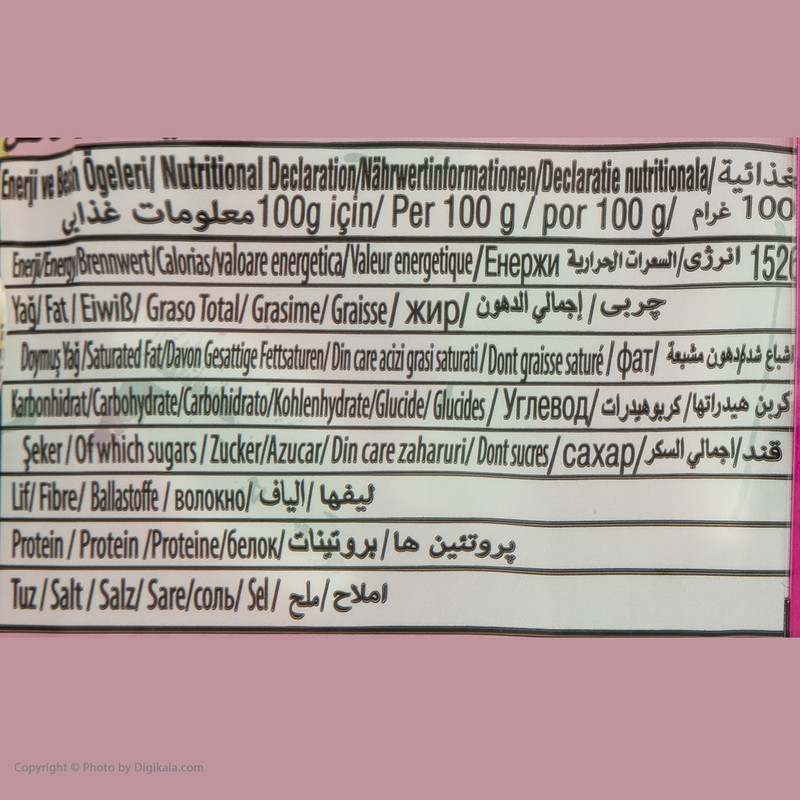 Enerji ve Besin Ögeleri/ Nutritional Declaration/Nährwertinformationen/Declaratie nutritionala/ غذائية
معلومات غذایی 100g için/ Per 100 g / por 100 g/ 100 غرام
Enerji/Energy/Brennwert/Calorias/valoare energetica/Valeur energetique/Енержи انرژی/السعرات الحرارية
Yağ/ Fat / Eiwiß/ Graso Total/ Grasime/ Graisse/ жир/ چربی/ إجمالي الدهون
Doymuş Yağ /Saturated Fat/Davon Gesattige Fettsaturen/ Din care acizi grasi saturati / Dont graisse saturé / фат/ اشباع شده/دهون مشبعة
Karbonhidrat/Carbohydrate/Carbohidrato/Kohlenhydrate/Glucide/ Glucides / Углевод/ کربن هیدراتها/ كربوهيدرات
Şeker / Of which sugars / Zucker/Azucar/ Din care zaharuri/ Dont sucres/ сахар/ قند/إجمالي السكر
Lif/ Fibre/ Ballastoffe / волокно/ ليفها / الياف
Protein / Protein /Proteine/белок/ پروتئین ها / بروتينات
Tuz / Salt / Salz/ Sare/соль/ Sel / املاح/ ملح
Copyright © Photo by Digikala.com